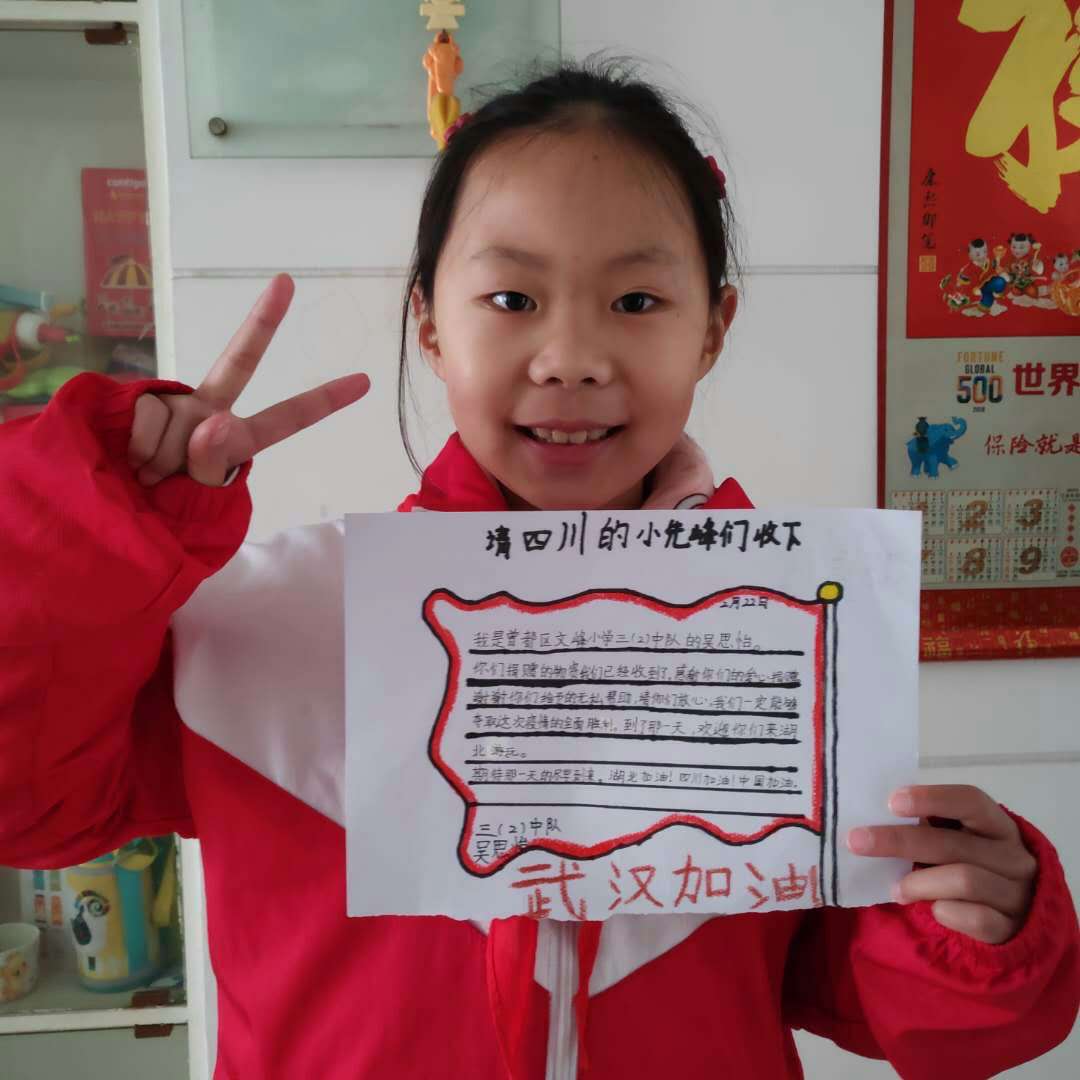 请四川的小先峰们收下
2月22日
我是曾都区文峰小学三(2)中队的吴思怡。
你们捐赠的物资我们已经收到了,感谢你们的爱心捐赠
谢谢你们给予的无私帮助,请你们放心,我们一定能够
夺取这次疫情的全面胜利,到了那一天,欢迎你们来湖
北游玩。
期待那一天的尽早到来。湖北加油!四川加油!中国加油。
三(2)中队
吴思怡
武汉加油
康熙御笔
FORTUNE
GLOBAL
500
世界
保险就是
1 2 3
8 9